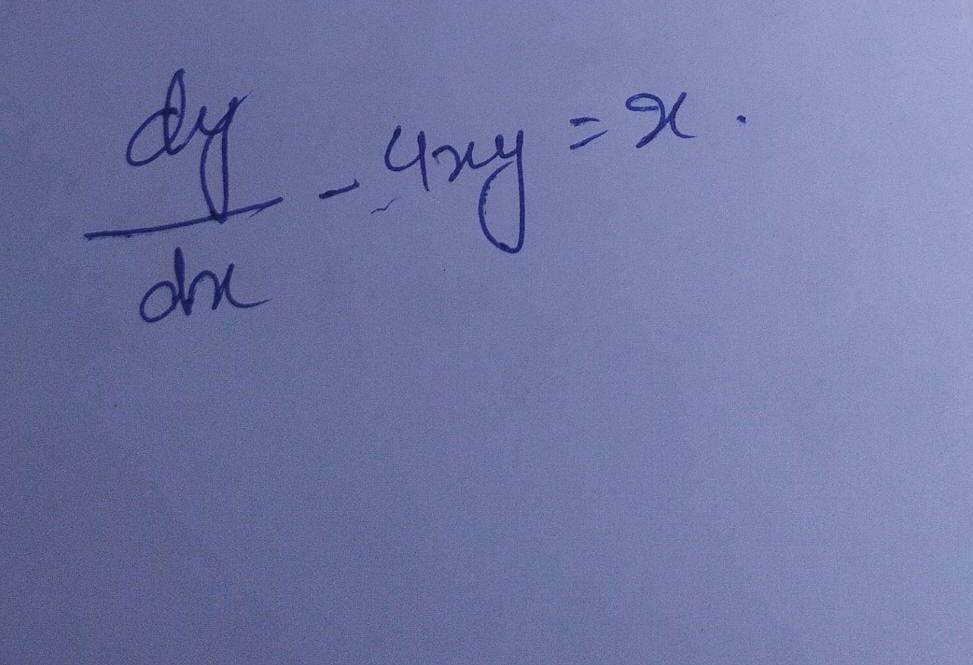 dy/dx - 4xy = x.